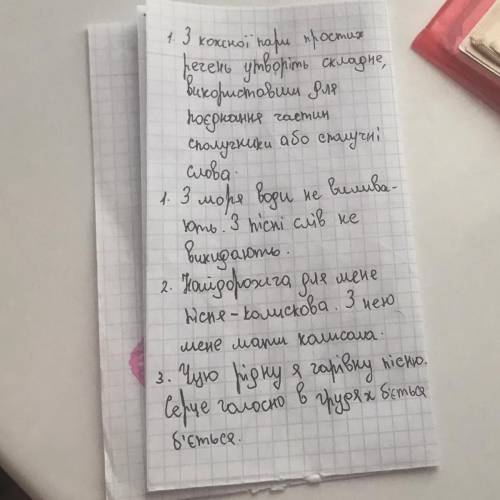 1. З кожної пари простих
речень утворіть складне,
використавши для
поєднання частин
сполучники або сполучні
слова.
1. З моря води не вилива-
ють. З пісні слів не
викидають.
2. Найдорожча для мене
пісня - колискова. З нею
мене мати колисала.
3. Чую рідну я чарівну пісню.
Серце голосно в грудях б'ється
б'ється.